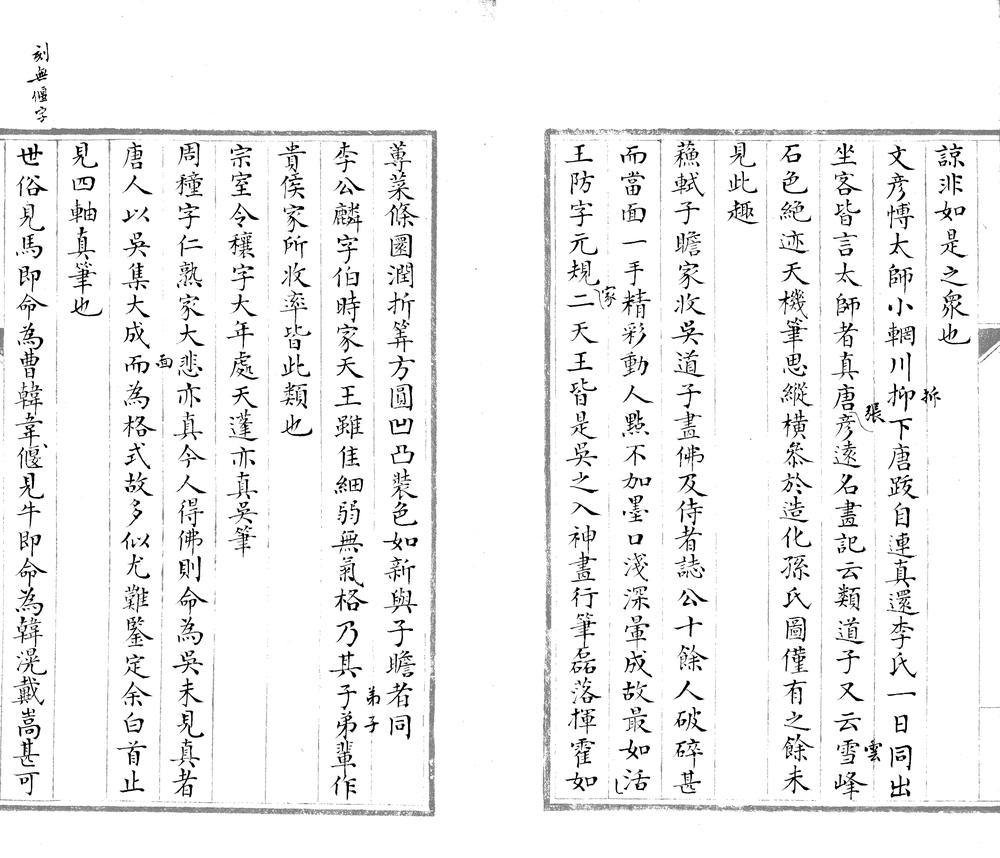 諒非如是之衆也
文彦愽太師小輞川抑下唐跋自連真還李氏一日同出
拆
坐客皆言太師者真唐彦遠名畫記云類道子又云雪峰
張
雲
石色絶迹天機筆思縱横叅於造化孫氏圖僅有之餘未
見此趣
蘓軾子瞻家收吳道子畫佛及侍者誌公十餘人破碎甚
而當面一手精彩動人㸃不加墨口淺深暈成故最如活
王防字元規二天王皆是吳之入神畫行筆磊落揮霍如
家
蓴菜條圜潤折筭方圓凹凸裝色如新與子瞻者同
李公麟字伯時家天王雖佳細弱無氣格乃其子弟輩作
弟子
貴侯家所收率皆此類也
宗室令穰字大年處天蓬亦真吳筆
周穜字仁熟家大悲亦真今人得佛則命為吳未見真者
唐人以吳集大成而為格式故多似尤難鑒定余白首止
面
見四軸真筆也
世俗見馬即命為曹韓韋偃見牛即命為韓滉戴嵩甚可
刻無偃字